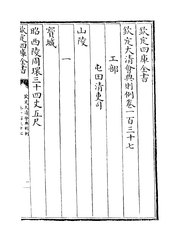 欽定四庫全書
欽定大清會典則例卷一百三十七
工部
屯田清吏司
山陵
一
寳城
昭西陵周環三十四丈五尺
欽定四庫全書